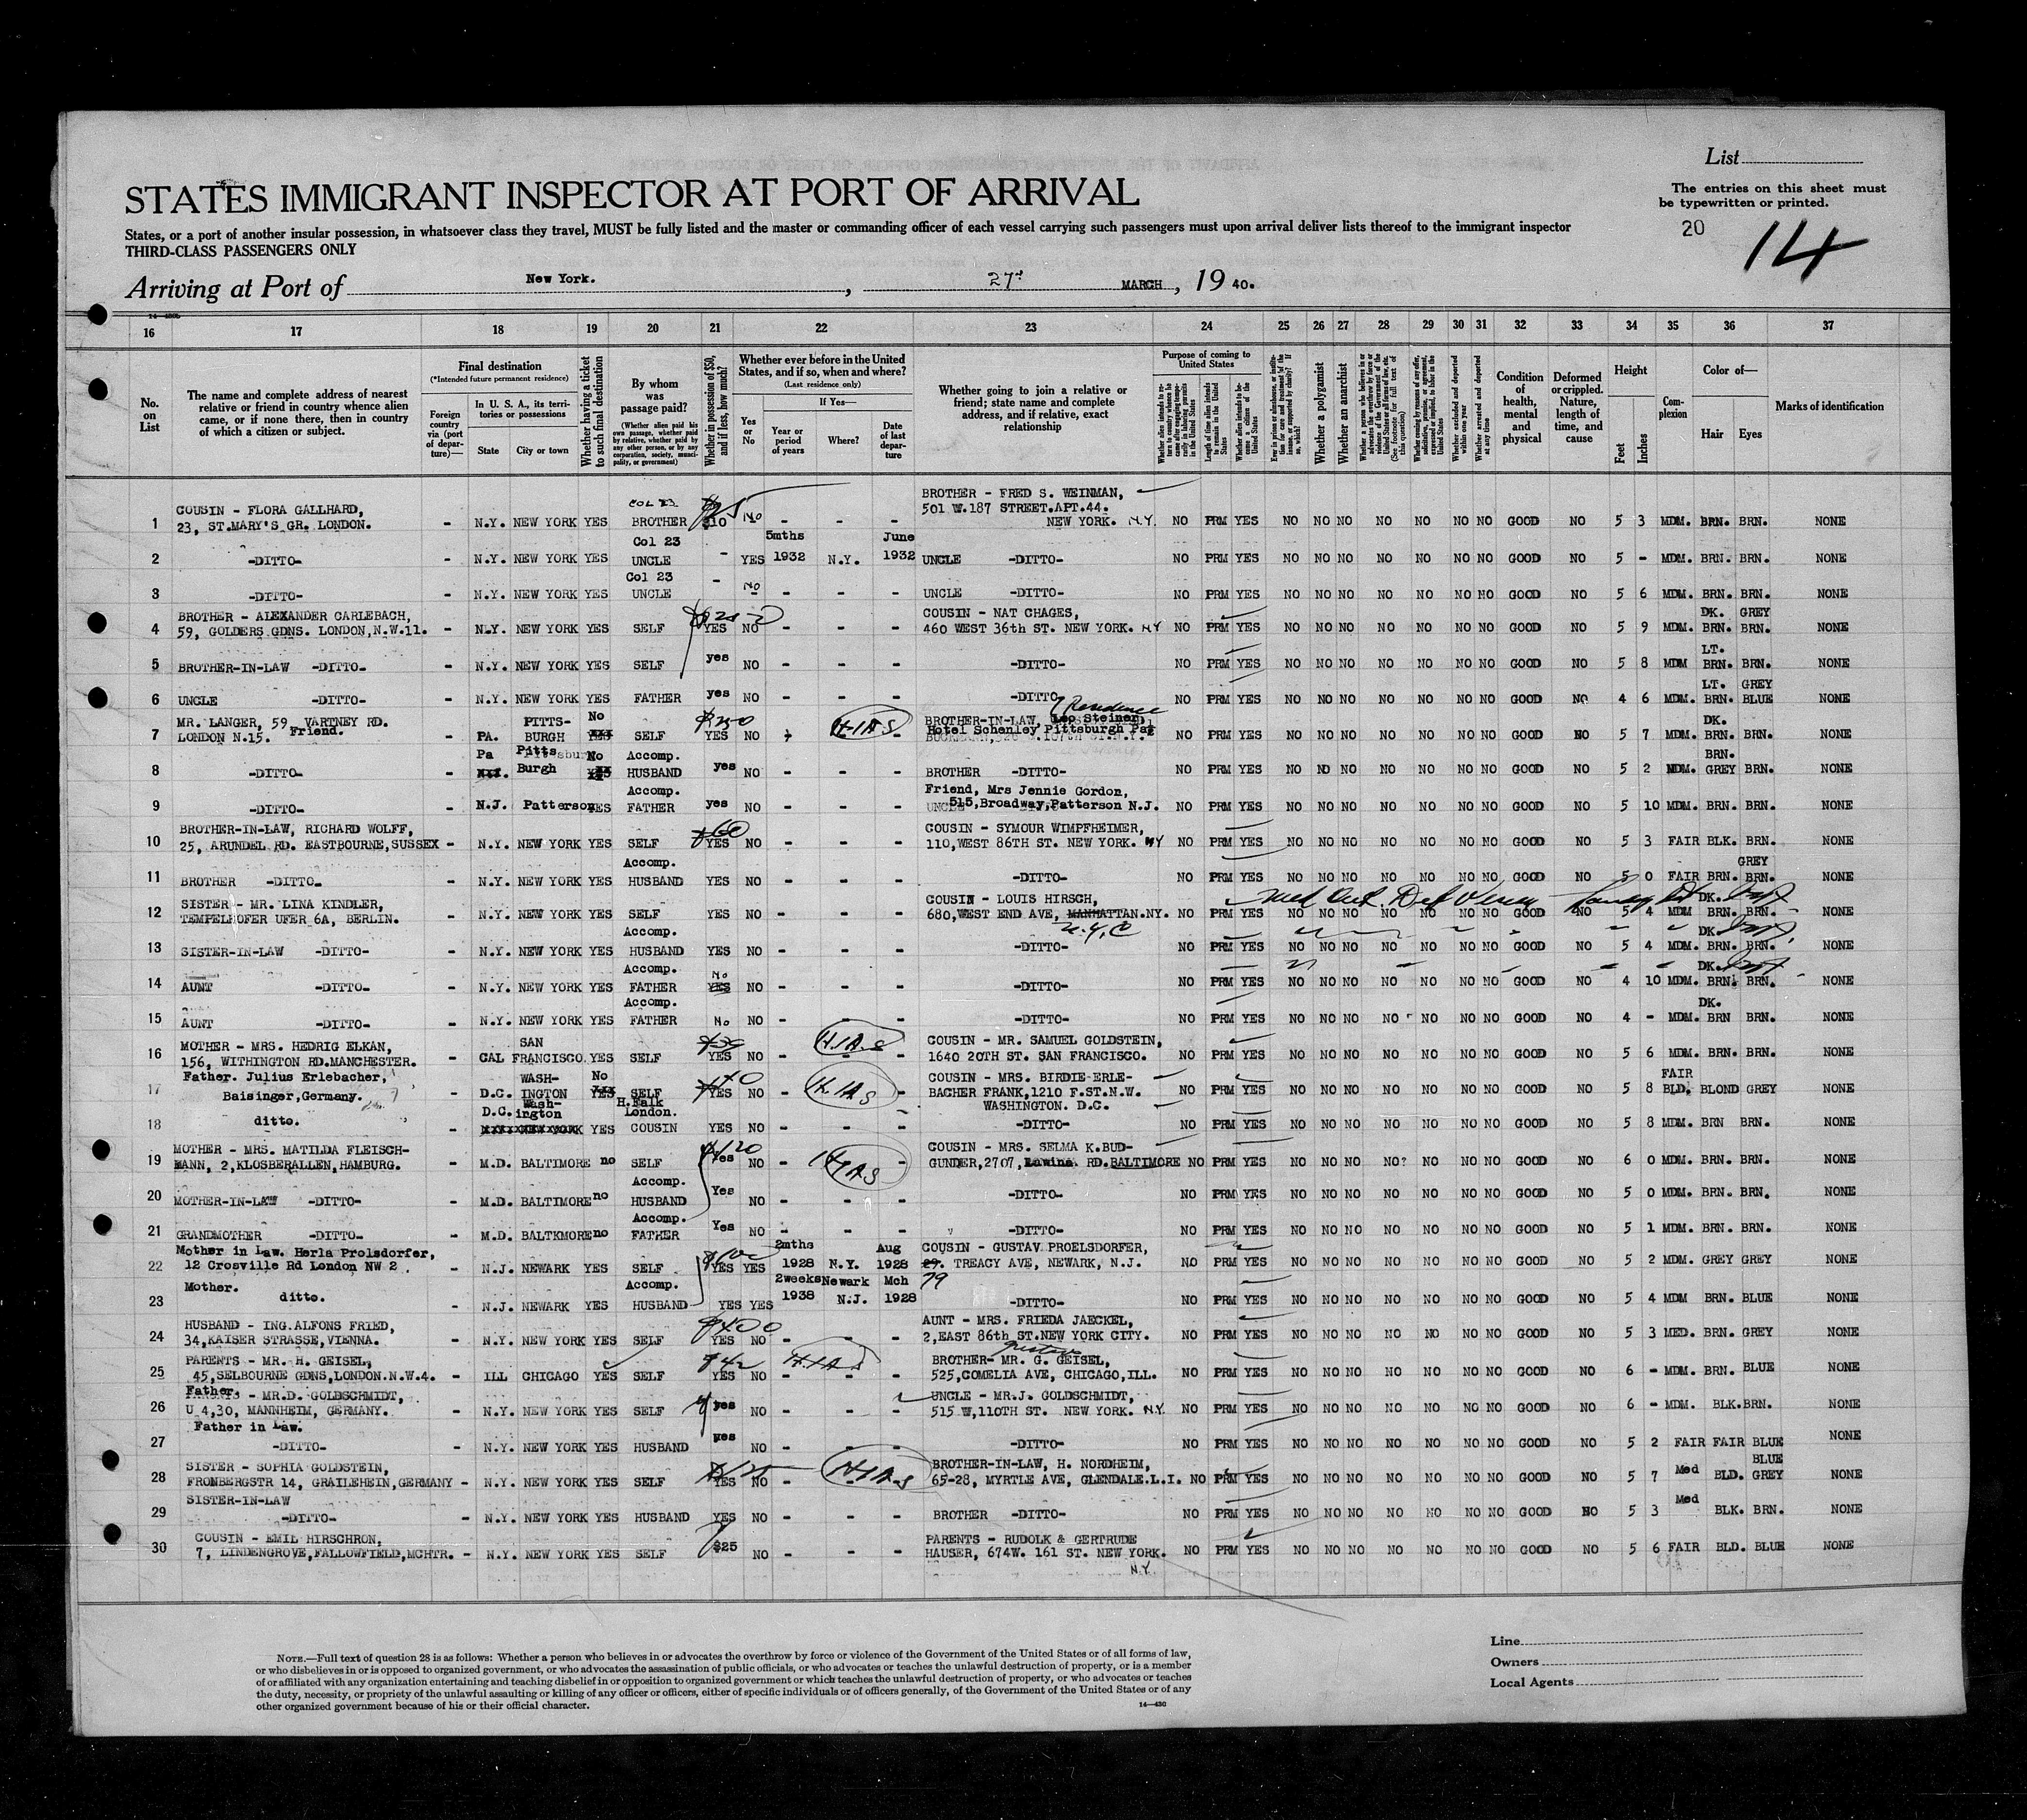 List
STATES IMMIGRANT INSPECTOR AT PORT OF ARRIVAL
The entries on this sheet must
be typewritten or printed.
States, or a port of another insular possession, in whatsoever class they travel, MUST be fully listed and the master or commanding officer of each vessel carrying such passengers must upon arrival deliver lists thereof to the immigrant inspector
THIRD-CLASS PASSENGERS ONLY
20 14
Arriving at Port of New York. , 27th MARCH , 19 40.
16 17 18 19 20 21 22 23 24 25 26 27 28 29 30 31 32 33 34 35 36 37
No. on List
The name and complete address of nearest relative or friend in country whence alien came, or if none there, then in country of which a citizen or subject.
Final destination
(*Intended future permanent residence)
Foreign country via (port of departure)—
In U. S. A., its territories or possessions
State City or town
Whether having a ticket to such final destination
By whom was passage paid?
(Whether alien paid his own passage, whether paid by relative, whether paid by any other person, or by any corporation, society, municipality, or government)
Whether in possession of $50, and if less, how much?
Whether ever before in the United States, and if so, when and where?
(Last residence only)
Yes or No
If Yes—
Year or period of years Where? Date of last departure
Whether going to join a relative or friend; state name and complete address, and if relative, exact relationship
Purpose of coming to United States
Whether alien intends to return to country whence he came after engaging temporarily in laboring pursuits in the United States
Length of time alien intends to remain in the United States
Whether alien intends to become a citizen of the United States
Ever in prison or almshouse, or institution for care and treatment of the insane, or supported by charity? If so, which?
Whether a polygamist
Whether an anarchist
Whether a person who believes in or advocates the overthrow by force or violence of the Government of the United States or all forms of law, etc. (See footnote for full text of this question)
Whether coming by reason of any offer, solicitation, promise, or agreement, expressed or implied, to labor in the United States
Whether excluded and deported within one year
Whether arrested and deported at any time
Condition of health, mental and physical
Deformed or crippled. Nature, length of time, and cause
Height
Feet Inches
Complexion
Color of—
Hair Eyes
Marks of identification
COUSIN - FLORA GALLHARD, COL 23 $25 BROTHER - FRED S. WEINMAN,
501 W.187 STREET.APT.44.
1 23, ST.MARY'S GR. LONDON. - N.Y. NEW YORK YES BROTHER $10 No - - - NEW YORK. N.Y. NO PRM YES NO NO NO NO NO NO NO GOOD NO 5 3 MDM. BRN. BRN. NONE
Col 23 5mths June
2 -DITTO- - N.Y. NEW YORK YES UNCLE - YES 1932 N.Y. 1932 UNCLE -DITTO- NO PRM YES NO NO NO NO NO NO NO GOOD NO 5 - MDM. BRN. BRN. NONE
Col 23
3 -DITTO- - N.Y. NEW YORK YES UNCLE - No - - - UNCLE -DITTO- NO PRM YES NO NO NO NO NO NO NO GOOD NO 5 6 MDM. BRN. BRN. NONE
BROTHER - ALEXANDER CARLEBACH, COUSIN - NAT CHAGES, DK. GREY
4 59, GOLDERS GDNS. LONDON,N.W.11. - N.Y. NEW YORK YES SELF YES NO - - - 460 WEST 36th ST. NEW YORK. NY NO PRM YES NO NO NO NO NO NO NO GOOD NO 5 9 MDM. BRN. BRN. NONE
LT.
5 BROTHER-IN-LAW -DITTO- - N.Y. NEW YORK YES SELF yes NO - - - -DITTO- NO PRM YES NO NO NO NO NO NO NO GOOD NO 5 8 MDM BRN. BRN. NONE
LT. GREY
6 UNCLE -DITTO- - N.Y. NEW YORK YES FATHER yes NO - - - -DITTO- NO PRM YES NO NO NO NO NO NO NO GOOD NO 4 6 MDM. BRN. BLUE NONE
Residence
MR. LANGER, 59, VARTNEY RD. PITTS- No $250 HIAS BROTHER-IN-LAW, Leo Steiner, DK.
7 LONDON N.15. Friend. - PA. BURGH SELF YES NO - Hotel Schenley Pittsburgh Pa NO PRM YES NO NO NO NO NO NO NO GOOD NO 5 7 MDM. BRN. BRN. NONE
Pa Pitts No Accomp. BRN.
8 -DITTO- - Burgh YES HUSBAND yes NO - - - BROTHER -DITTO- NO PRM YES NO NO NO NO NO NO NO GOOD NO 5 2 MDM. GREY BRN. NONE
Accomp. Friend, Mrs Jennie Gordon,
9 -DITTO- - N.J. Patterson YES FATHER yes NO - - - 515,Broadway,Patterson N.J. NO PRM YES NO NO NO NO NO NO NO GOOD NO 5 10 MDM. BRN. BRN. NONE
BROTHER-IN-LAW, RICHARD WOLFF, $60 COUSIN - SYMOUR WIMPFHEIMER,
10 25, ARUNDEL RD. EASTBOURNE,SUSSEX - N.Y. NEW YORK YES SELF YES NO - - - 110,WEST 86TH ST. NEW YORK. NY NO PRM YES NO NO NO NO NO NO NO GOOD NO 5 3 FAIR BLK. BRN. NONE
Accomp. GREY
11 BROTHER -DITTO- - N.Y. NEW YORK YES HUSBAND YES NO - - - -DITTO- NO PRM YES NO NO NO NO NO NO NO GOOD NO 5 0 FAIR BRN. BRN. NONE
SISTER - MR. LINA KINDLER, COUSIN - LOUIS HIRSCH, DK.
12 TEMPELHOFER UFER 6A, BERLIN. - N.Y. NEW YORK YES SELF YES NO - - - 680,WEST END AVE, MANHATTAN.NY. NO PRM YES NO NO NO NO NO NO NO GOOD NO 5 4 MDM BRN. BRN. NONE
Accomp. N.Y.C DK.
13 SISTER-IN-LAW -DITTO- - N.Y. NEW YORK YES HUSBAND YES NO - - - -DITTO- NO PRM YES NO NO NO NO NO NO NO GOOD NO 5 4 MDM. BRN. BRN. NONE
Accomp. No DK.
14 AUNT -DITTO- - N.Y. NEW YORK YES FATHER YES NO - - - -DITTO- NO PRM YES NO NO NO NO NO NO NO GOOD NO 4 10 MDM. BRN. BRN. NONE
Accomp. DK.
15 AUNT -DITTO- - N.Y. NEW YORK YES FATHER No NO - - - -DITTO- NO PRM YES NO NO NO NO NO NO NO GOOD NO 4 - MDM. BRN BRN. NONE
MOTHER - MRS. HEDRIG ELKAN, SAN HIAS COUSIN - MR. SAMUEL GOLDSTEIN,
16 156, WITHINGTON RD.MANCHESTER. - CAL FRANCISCO. YES SELF YES NO - - - 1640 20TH ST. SAN FRANCISCO. NO PRM YES NO NO NO NO NO NO NO GOOD NO 5 6 MDM. BRN. BRN. NONE
Father. Julius Erlebacher, WASH- No $40 COUSIN - MRS. BIRDIE ERLE- FAIR
17 Baisinger,Germany. - D.C. INGTON YES SELF YES NO - HIAS - BACHER FRANK,1210 F.ST.N.W. NO PRM YES NO NO NO NO NO NO NO GOOD NO 5 8 BLD. BLOND GREY NONE
D.C. Wash-ington H.Falk London. WASHINGTON. D.C.
18 ditto. - YES COUSIN YES NO - - - -DITTO- NO PRM YES NO NO NO NO NO NO NO GOOD NO 5 8 MDM. BRN BRN. NONE
MOTHER - MRS. MATILDA FLEISCH- $120 COUSIN - MRS. SELMA K.BUD-
19 MANN, 2,KLOSBERALLEN,HAMBURG. - M.D. BALTIMORE no SELF Yes NO - HIAS - GUNDER,2707, RD.BALTIMORE NO PRM YES NO NO NO NO NO NO NO GOOD NO 6 0 MDM. BRN. BRN. NONE
Accomp.
20 MOTHER-IN-LAW -DITTO- - M.D. BALTIMORE no HUSBAND Yes NO - - - -DITTO- NO PRM YES NO NO NO NO NO NO NO GOOD NO 5 0 MDM. BRN. BRN. NONE
Accomp.
21 GRANDMOTHER -DITTO- - M.D. BALTKMORE no FATHER Yes NO - - - -DITTO- NO PRM YES NO NO NO NO NO NO NO GOOD NO 5 1 MDM. BRN. BRN. NONE
Mother in Law. Herla Prolsdorfer, 2mths Aug COUSIN - GUSTAV PROELSDORFER,
22 12 Crosville Rd London NW 2. - N.J. NEWARK YES SELF YES YES 1928 N.Y. 1928 29. TREACY AVE, NEWARK, N.J. NO PRM YES NO NO NO NO NO NO NO GOOD NO 5 2 MDM. GREY GREY NONE
Mother. Accomp. 2weeks Newark Mch 79
23 ditto. - N.J. NEWARK YES HUSBAND YES YES 1938 N.J. 1928 -DITTO- NO PRM YES NO NO NO NO NO NO NO GOOD NO 5 4 MDM BRN. BLUE NONE
HUSBAND - ING.ALFONS FRIED, $400 AUNT - MRS. FRIEDA JAECKEL,
24 34,KAISER STRASSE,VIENNA. - N.Y. NEW YORK YES SELF YES NO - - - 2,EAST 86th ST.NEW YORK CITY. NO PRM YES NO NO NO NO NO NO NO GOOD NO 5 3 MED. BRN. GREY NONE
Gustav
PARENTS - MR. H. GEISEL, $42 HIAS BROTHER- MR. G. GEISEL,
25 45,SELBOURNE GDNS,LONDON.N.W.4. - ILL CHICAGO YES SELF YES NO - - - 525,COMELIA AVE, CHICAGO,ILL. NO PRM YES NO NO NO NO NO NO NO GOOD NO 6 - MDM. BRN. BLUE NONE
Father. - MR.D. GOLDSCHMIDT, UNCLE - MR.J. GOLDSCHMIDT,
26 U 4,30, MANNHEIM, GERMANY. - N.Y. NEW YORK YES SELF yes NO - - - 515 W,110TH ST. NEW YORK. N.Y. NO PRM YES NO NO NO NO NO NO NO GOOD NO 6 - MDM. BLK.BRN. NONE
Father in Law.
27 -DITTO- - N.Y. NEW YORK YES HUSBAND yes NO - - - -DITTO- NO PRM YES NO NO NO NO NO NO NO GOOD NO 5 2 FAIR FAIR BLUE NONE
SISTER - SOPHIA GOLDSTEIN, BROTHER-IN-LAW, H. NORDHEIM, BLUE
28 FRONBERGSTR 14, GRAILEHEIN,GERMANY - N.Y. NEW YORK YES SELF YES NO - HIAS 65-28, MYRTLE AVE, GLENDALE.L.I. NO PRM YES NO NO NO NO NO NO NO GOOD NO 5 7 Med BLD. GREY NONE
SISTER-IN-LAW
29 -DITTO- - N.Y. NEW YORK YES HUSBAND YES NO - - - BROTHER -DITTO- NO PRM YES NO NO NO NO NO NO NO GOOD NO 5 3 Med BLK. BRN. NONE
COUSIN - EMIL HIRSCHRON, PARENTS - RUDOLK & GERTRUDE
30 7, LINDENGROVE,FALLOWFIELD,MCHTR. - N.Y. NEW YORK YES SELF $25 NO - - - HAUSER, 674W. 161 ST. NEW YORK. NO PRM YES NO NO NO NO NO NO NO GOOD NO 5 6 FAIR BLD. BLUE NONE
N.Y.
Line
Owners
Local Agents
NOTE.—Full text of question 28 is as follows: Whether a person who believes in or advocates the overthrow by force or violence of the Government of the United States or of all forms of law,
or who disbelieves in or is opposed to organized government, or who advocates the assassination of public officials, or who advocates or teaches the unlawful destruction of property, or is a member
of or affiliated with any organization entertaining and teaching disbelief in or opposition to organized government or which teaches the unlawful destruction of property, or who advocates or teaches
the duty, necessity, or propriety of the unlawful assaulting or killing of any officer or officers, either of specific individuals or of officers generally, of the Government of the United States or of any
other organized government because of his or their official character.
14—430